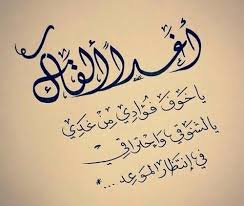 أغداً ألقاك
يا خوف فؤادي من غدي
يالشوقي واحتراقي
في إنتظار الموعد ... *